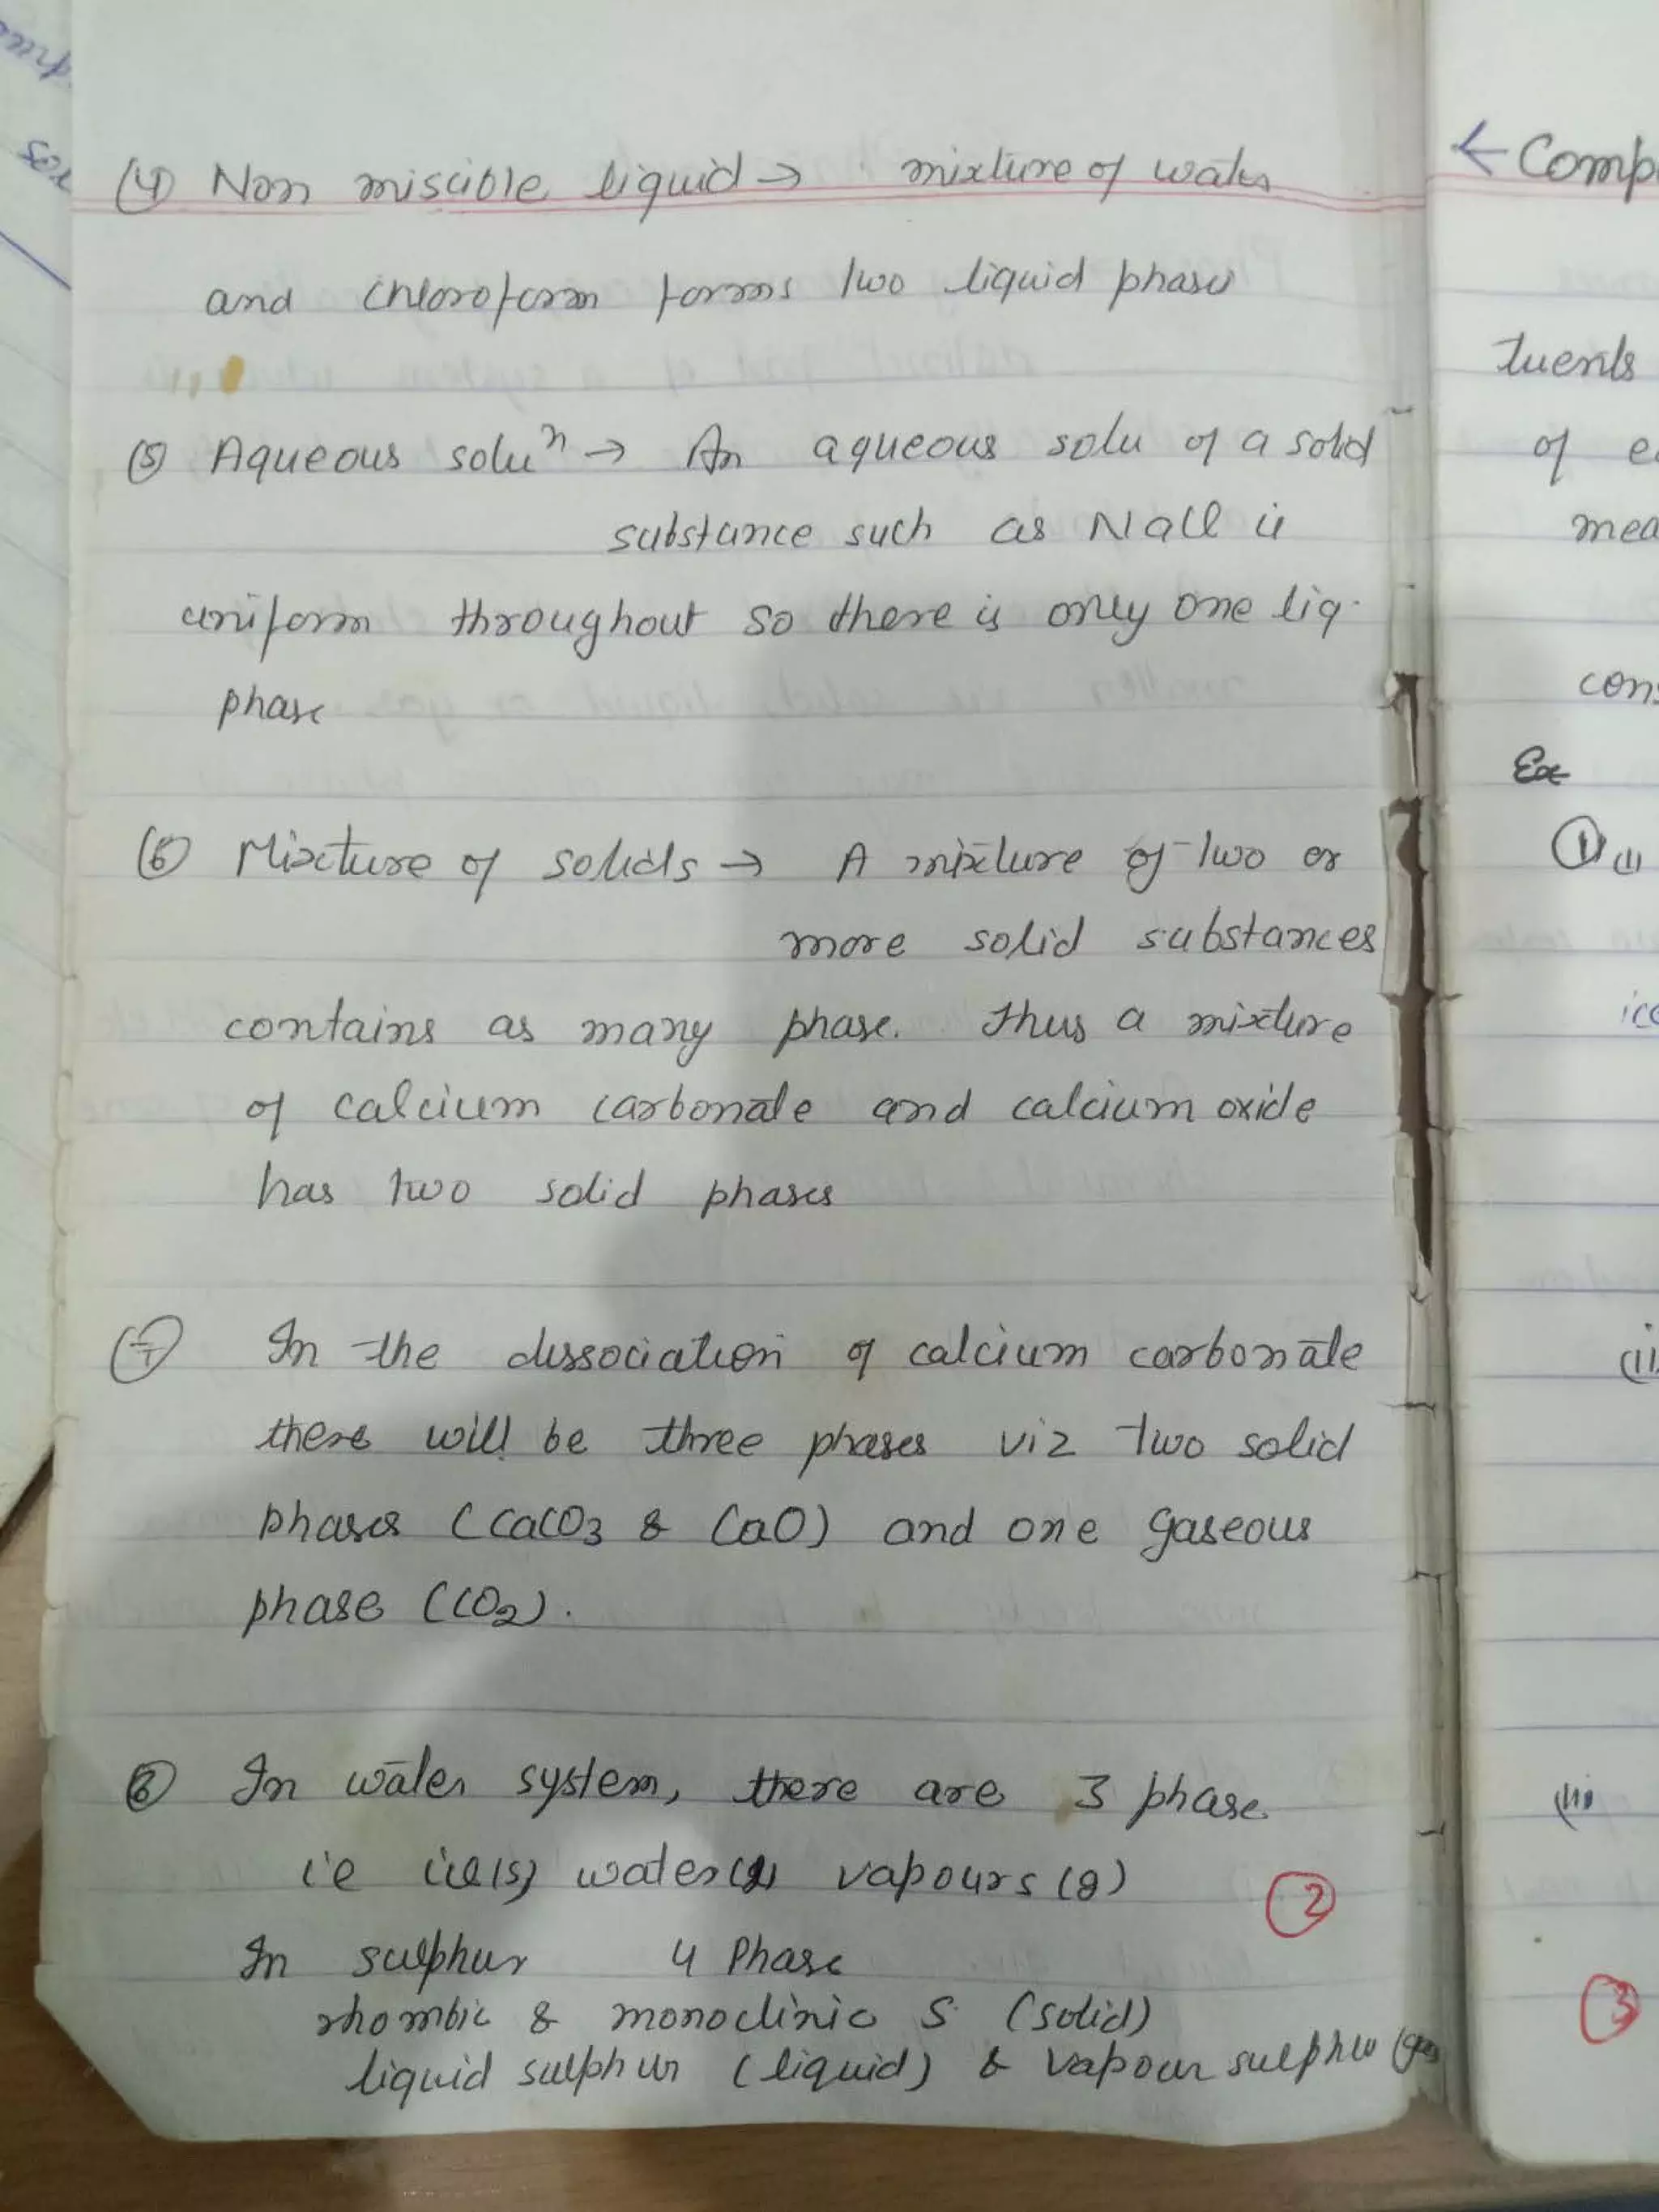 (4) Non miscible liquid → mixture of water
and chloroform forms two liquid phase
(5) Aqueous soluⁿ → An aqueous solu of a solid
substance such as NaCl is
uniform throughout so there is only one liq.
phase
(6) Mixture of solids → A mixture of two or
more solid substances
contains as many phase. Thus a mixture
of calcium carbonate and calcium oxide
has two solid phases
(7) In the dissociation of calcium carbonate
there will be three phases viz two solid
phases (CaCO3 & CaO) and one gaseous
phase (CO2).
(8) In water system, there are 3 phase
i.e ice(s) water(l) vapours (g)
2
In sulphur 4 Phase
rhombic & monoclinic S (solid)
liquid sulphur (liquid) & vapour sulphur (gas
← Comp
tuents
of e
mea
cons
Ex
(1) (i)
ice
(ii
(iii
3